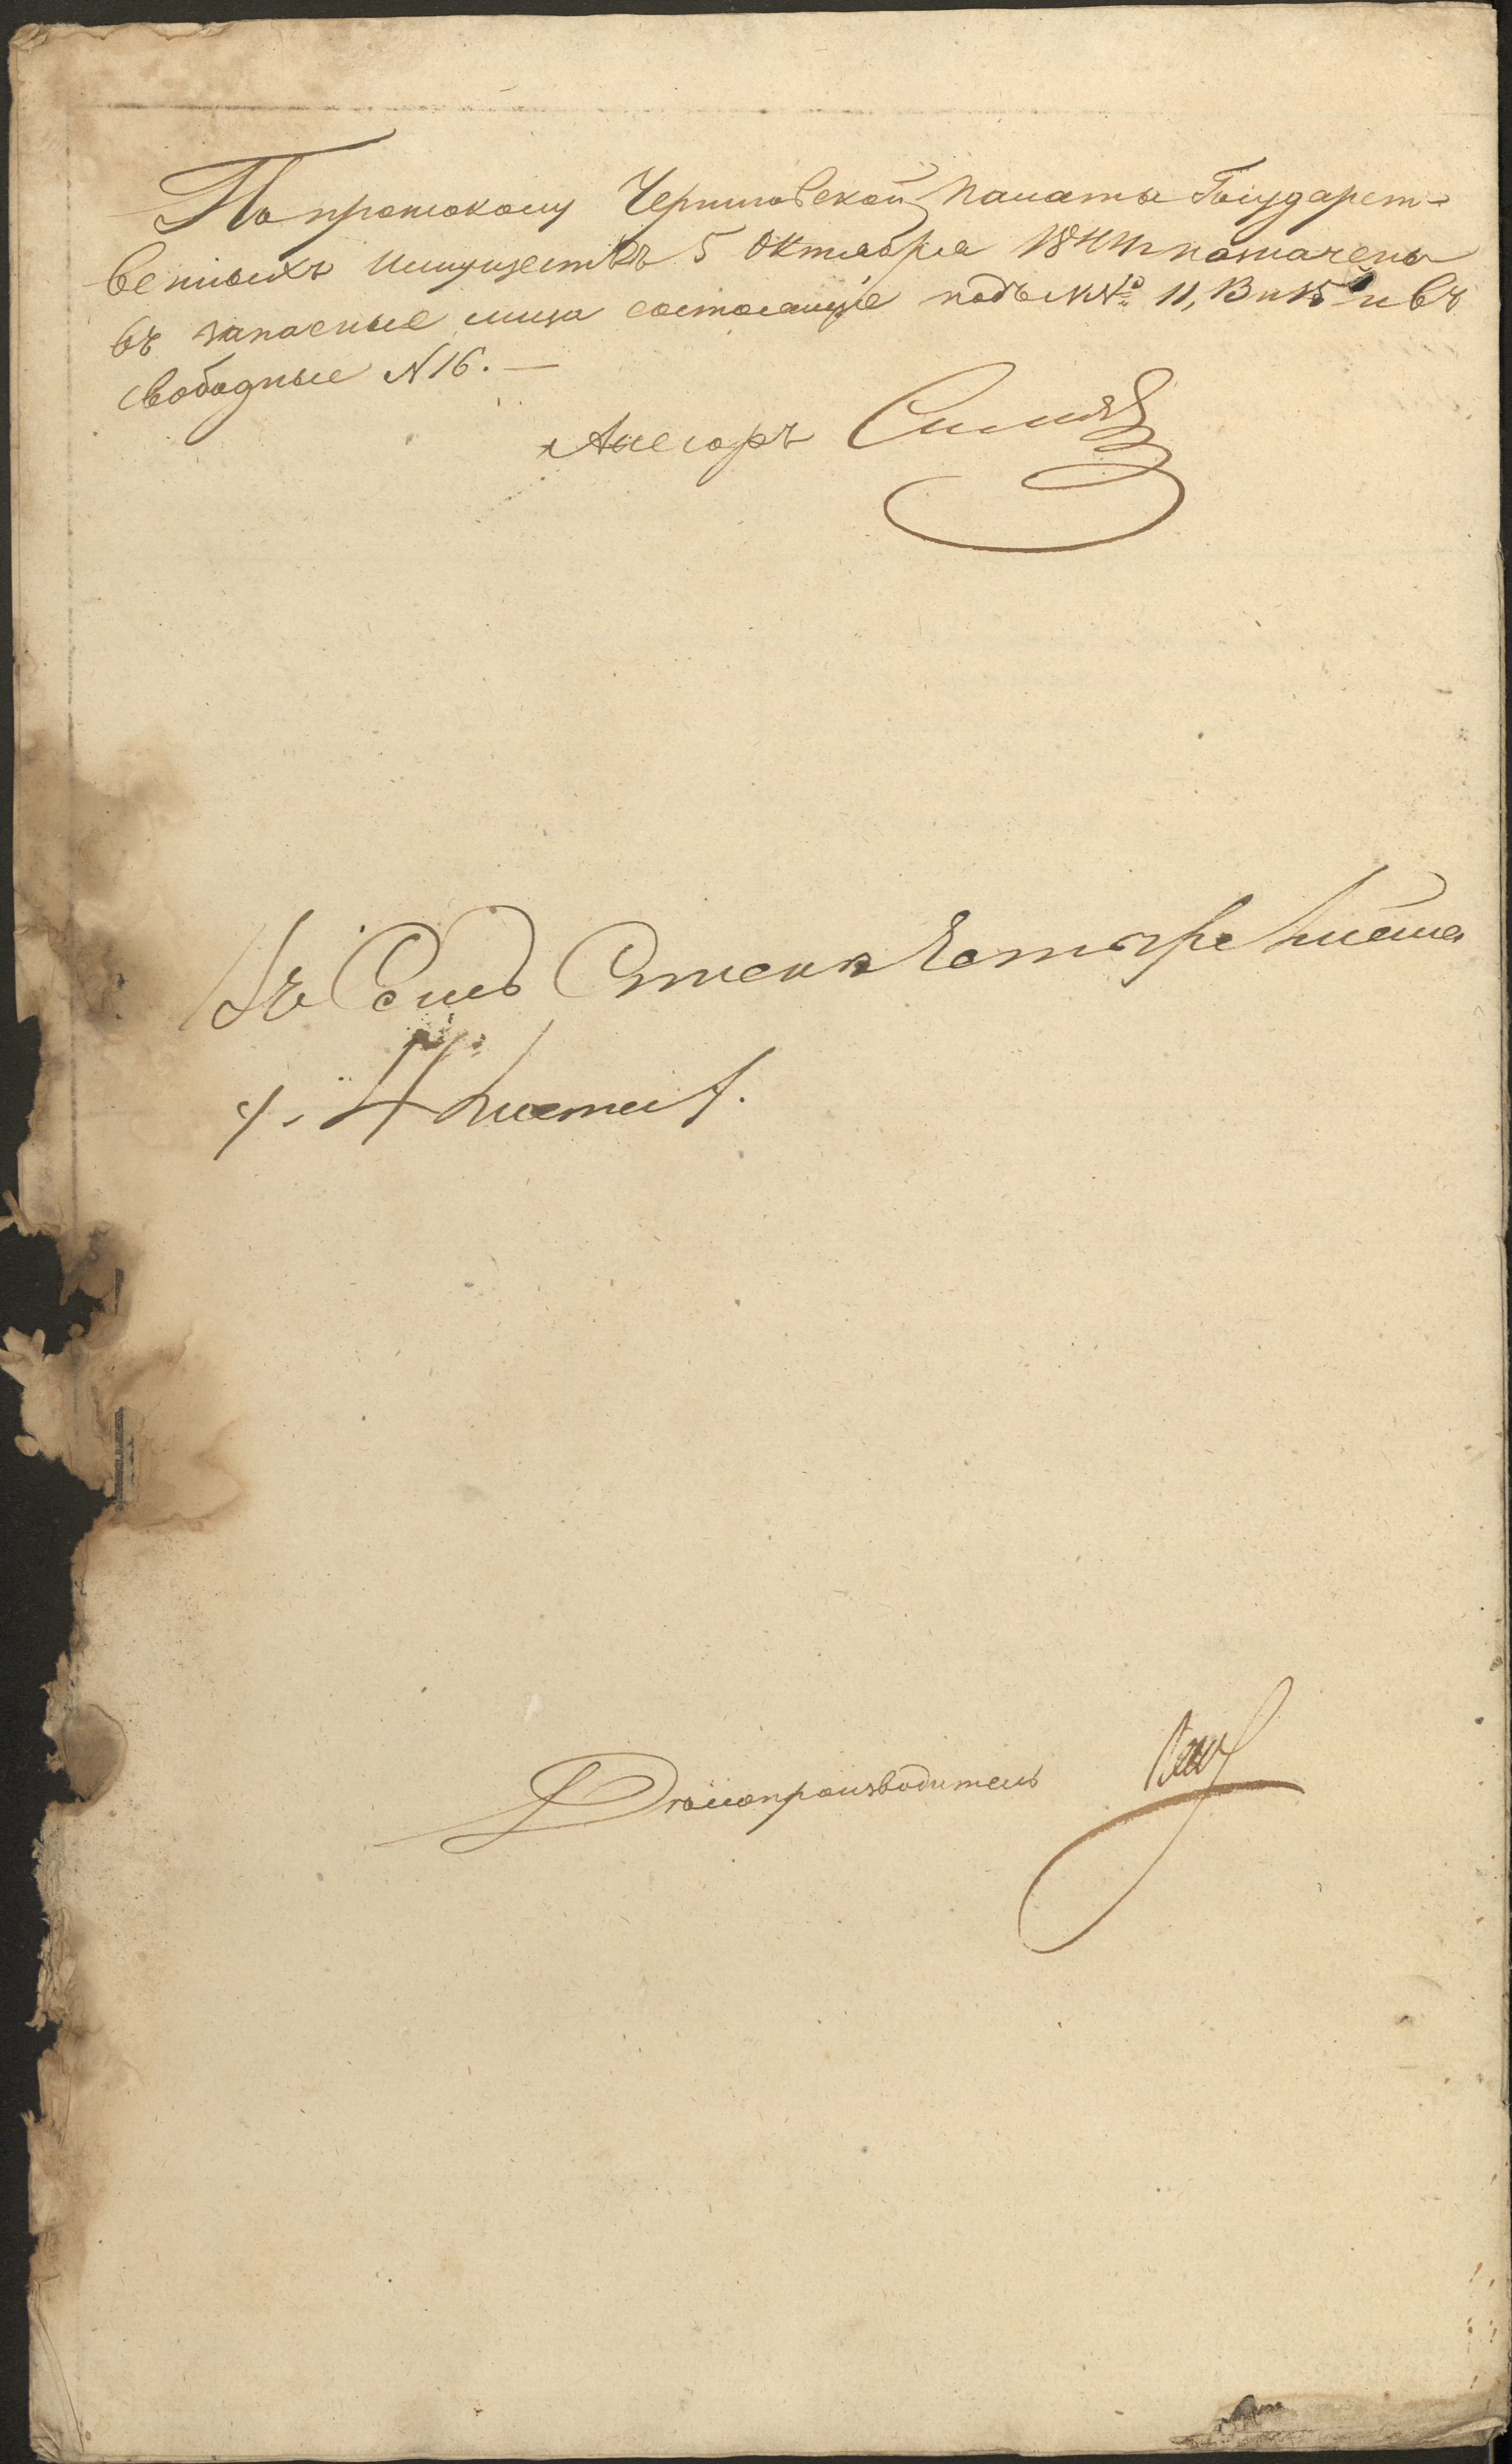 По протоколу Черниговской Палаты Государст=
венныхъ Имуществъ 5 Октября 1844 г назначены
въ запасные лица состоящіе подъ №№ 11, 13 и 15 и въ
свободные N 16. —
Ассесоръ
Въ Семъ Описи Четыре листа
4 листа.
Дѣлопроизводитель